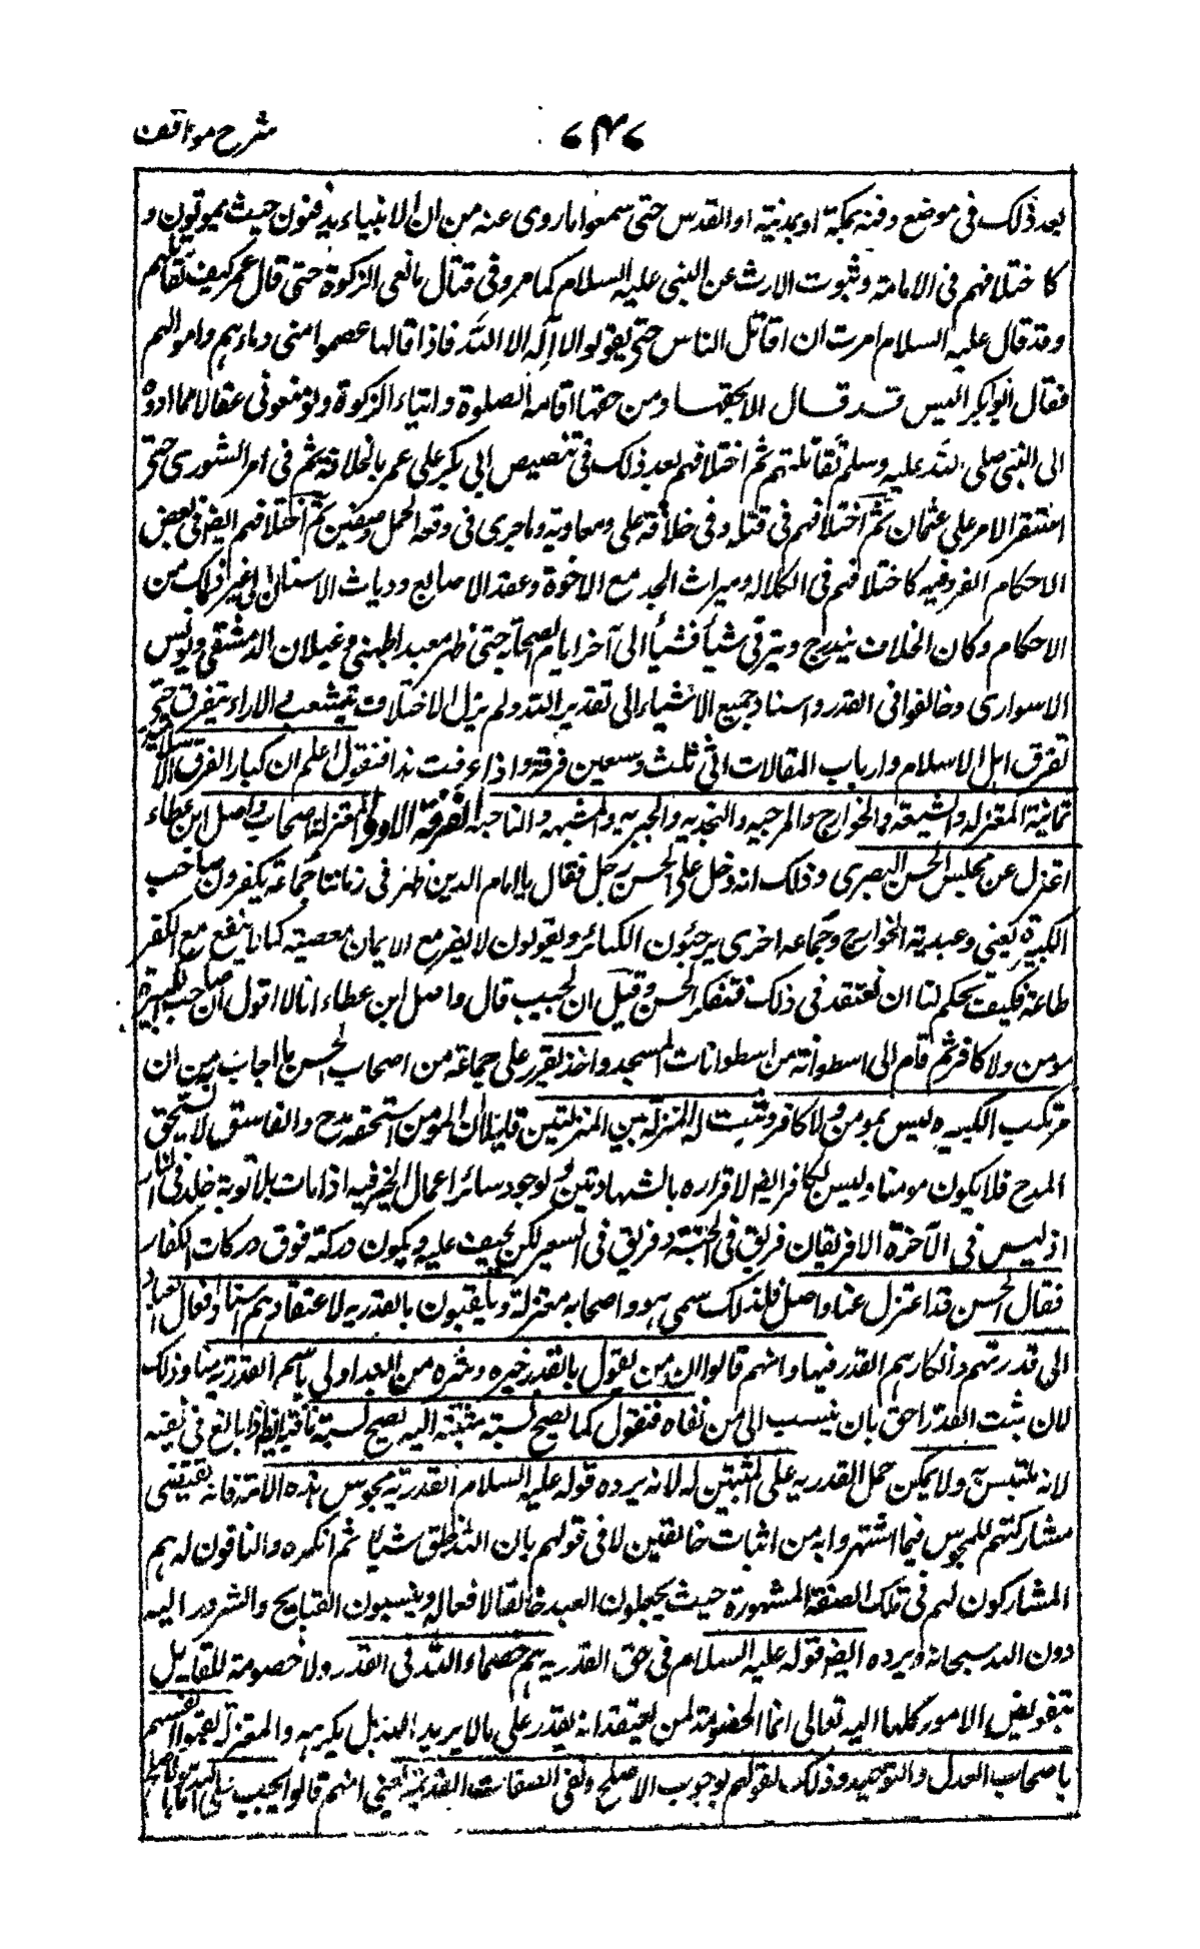 شرح مواقف
۷۴۷
بعد ذلك فى موضع دفنه بمكة او بمدينة او القدس حتى سمعوا ما روى عنه من ان الانبياء يدفنون حيث يموتون و
كاختلافهم فى الامامة وثبوت الارث عن النبى عليه السلام كما مر وفى قتال مانعى الزكوة حتى قال عمر كيف نقاتلهم
وقد قال عليه السلام امرت ان اقاتل الناس حتى يقولوا لا اله الا الله فاذا قالها عصموا منى دماءهم واموالهم
فقال ابو بكر اليس قد قال الا بحقها ومن حقها اقامة الصلوة وايتاء الزكوة ولو منعونى عقالا مما ادوه
الى النبى صلى الله عليه وسلم لقاتلتهم ثم اختلافهم بعد ذلك فى تنصيص ابى بكر على عمر بالخلافة ثم فى امر الشورى حتى
استقر الامر على عثمان ثم اختلافهم فى قتله وفى خلافة على ومعاوية وما جرى فى وقعة الجمل وصفين ثم اختلافهم ايضا فى بعض
الاحكام الفروعية كاختلافهم فى الكلالة وميراث الجد مع الاخوة وعقد الاصابع وديات الاسنان الى غير ذلك من
الاحكام وكان الخلاف يتدرج ويترقى شيأ فشيأ الى آخر ايام الصحابة حتى ظهر معبد الجهنى وغيلان الدمشقى ويونس
الاسوارى وخالفوا فى القدر واسناد جميع الاشياء الى تقدير الله ولم يزل الاختلاف يتشعب والاراء يتفرق حتى
تفرق اهل الاسلام وارباب المقالات الى ثلث وسبعين فرقة واذا عرفت هذا فنقول اعلم ان كبار الفرق الاسلامية
ثمانية المعتزلة والشيعة والخوارج والمرجية والنجارية والجبرية والمشبهة والناجية الفرقة الاولى المعتزلة اصحاب واصل ابن عطاء
اعتزل عن مجلس الحسن البصرى وذلك انه دخل على الحسن رجل فقال يا امام الدين ظهر فى زماننا جماعة يكفرون صاحب
الكبيرة يعنى وعيدية الخوارج وجماعه اخرى يرجئون الكبائر ويقولون لا يضر مع الايمان معصية كما لا ينفع مع الكفر
طاعة فكيف تحكم لنا ان نعتقد فى ذلك فتفكر الحسن وقبل ان يجيب قال واصل ابن عطاء انا لا اقول ان صاحب الكبيرة
مومن ولا كافر ثم قام الى اسطوانة من اسطوانات المسجد واخذ يقرر على جماعة من اصحاب الحسن ما اجاب به من ان
مرتكب الكبيره ليس بمومن ولا كافر ويثبت له المنزلة بين المنزلتين قايلا ان المومن استحقه مدح والفاسق لا يستحق
المدح فلا يكون مومنا وليس بكافر ايضا لاقراره بالشهادتين ولوجود سائر اعمال الخير فيه اذا مات بلا توبة خلد فى النار
اذ ليس فى الآخرة الا فريقان فريق فى الجنة وفريق فى السعير لكن يخفف عليه ويكون دركته فوق دركات الكفار
فقال الحسن قد اعتزل عنا واصل فلذلك سمى هو واصحابه معتزلة ويلقبون بالقدرية لاعتقادهم اسناد افعال العباد
الى قدرتهم وانكارهم القدر فيها وانهم قالوا ان من يقول بالقدر خيره وشره من الله اولى باسم القدرية منا وذلك
لان مثبت القدر احق بان ينسب اليه من نفاه فنقول كما يصح نسبة مثبته اليه يصح نسبة نافيه اليه اذا بالغ فى نفيه
لانه ملتبس به ولا يمكن حمل القدرية على المثبتين له لانه يرده قوله عليه السلام القدرية مجوس هذه الامة فانه يقتضى
مشاركتهم للمجوس فيما اشتهروا به من اثبات خالقين لا فى قولهم بان الله خلق شيأ ثم انكره والنافون له هم
المشاركون لهم فى تلك الصفة المشهورة حيث يجعلون العبد خالقا لافعاله وينسبون القبايح والشرور اليه
دون الله سبحانه ويرده ايضا قوله عليه السلام فى حق القدرية هم خصماء الله فى القدر ولا خصومة للقايل
بتفويض الامور كلها اليه تعالى انما الخصومة لمن يعتقد انه يقدر على ما لا يريد الله بل يكرهه والمعتزلة لقبوا انفسهم
باصحاب العدل والتوحيد وذلك لقولهم بوجوب الاصلح ونفى الصفات القديمة يعنى انهم قالوا يجب على الله